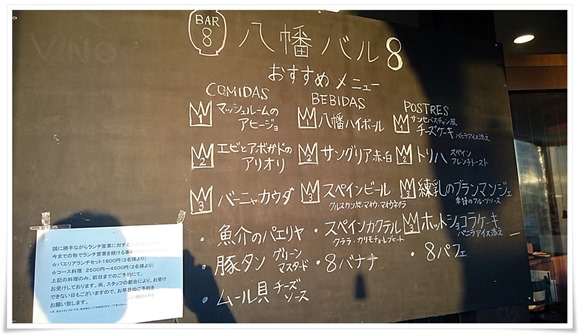 BAR
8
八幡バル8
おすすめ メニュー
COMIDAS
1 マッシュルームの
アヒージョ
2 エビとアボガドの
アリオリ
3 バーニャカウダ
・魚介のパエリヤ
・豚タン グリーン
マスタード
・ムール貝 チーズ
ソース
BEBIDAS
1 八幡ハイボール
2 サングリア赤・白
3 スペインビール
・スペインカクテル
・8バナナ
POSTRES
1 サンセバスチャン風
チーズケーキ バニラアイス添え
2 トリハ スペイン
フレンチトースト
3 練乳のブランマンジェ
季節のフルーツソース
3 ホットショコラケーキ
バニラアイス添え
・8パフェ
誠に勝手ながらランチ営業に対する
今までの形でランチ営業を続ける事が
☆パエリアランチセット1800円(2名様より)
☆コース料理 2500円〜4500円(2名様より)
上記の料理のみ、前日までのご予約にて、
お受けしております。尚、スタッフの都合により、お受け
できない日もございますので、お早目のご予約を
お願い致します。